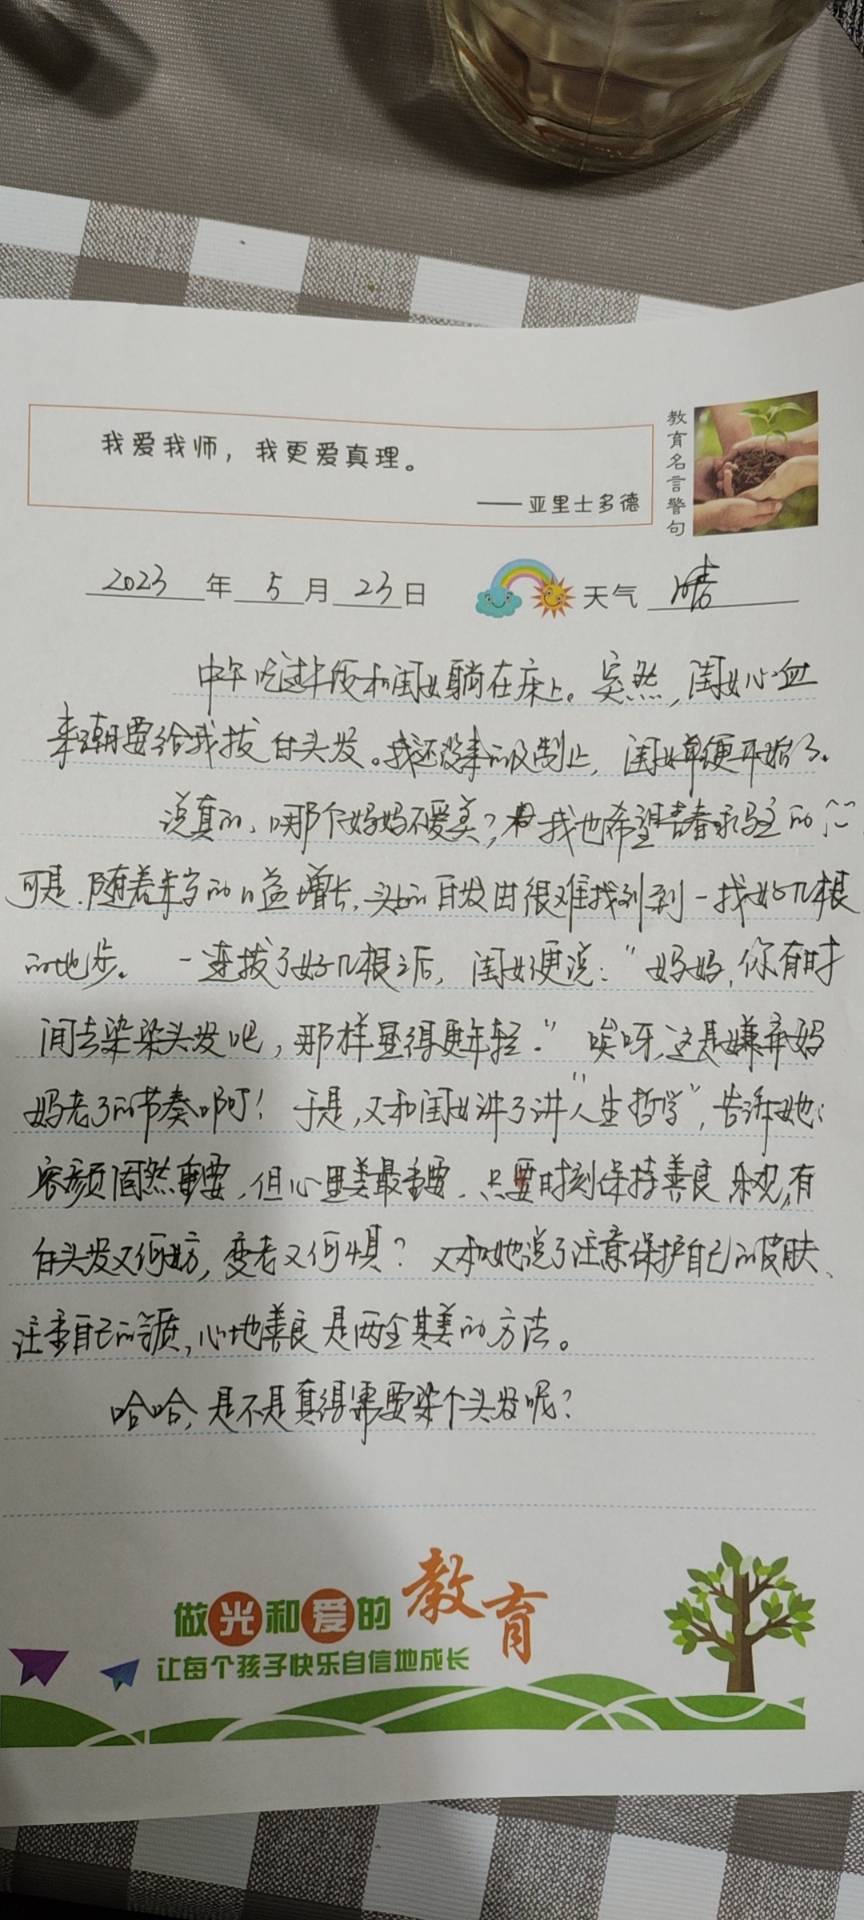 我爱我师，我更爱真理。
——亚里士多德
教育名言警句
2023年5月23日 天气 晴
中午吃过午饭和闺女躺在床上。突然，闺女心血
来潮要给我拔白头发。我还没来的及制止，闺女便开始了。
说真的，哪个妈妈不爱美？我也希望青春永驻的
可是，随着年岁的日益增长，头上的白发由很难找到到一找好几根
的地步。一连拔了好几根之后，闺女便说：“妈妈，你有时
间去染染头发吧，那样显得更年轻。”唉呀，这是嫌弃妈
妈老了的节奏啊！于是，又和闺女讲了讲“人生哲学”，告诉她：
容颜固然重要，但心里美最重要，只要时刻保持善良乐观，有
白头发又何妨，变老又何惧？又和她说了注意保护自己的皮肤、
注重自己的气质，心地善良是两全其美的方法。
哈哈，是不是真得需要染个头发呢？
做光和爱的教育
让每个孩子快乐自信地成长